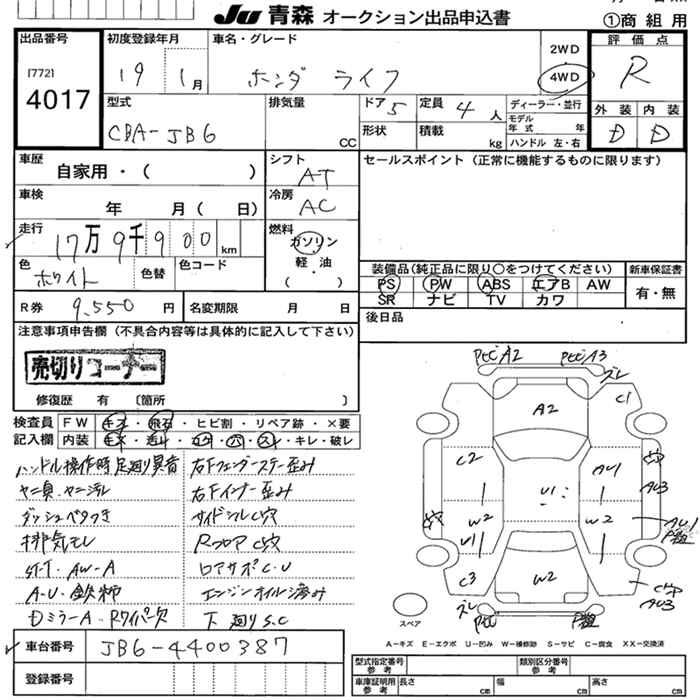 JU 青森 オークション出品申込書
①商組用
出品番号
[772]
4017
初度登録年月
19 1月
車名・グレード
ホンダ ライフ
2WD
4WD
評価点
R
外装 内装
D D
型式
CBA-JB6
排気量
CC
ドア 5
定員 4人
形状
積載 kg
ディーラー・並行
モデル年式 年
ハンドル 左・右
車歴
自家用・( )
シフト
AT
セールスポイント(正常に機能するものに限ります)
車検
年 月( 日)
冷房
AC
走行
17万9千900km
燃料
ガソリン
軽・油
( )
色
ホワイト
色替
色コード
装備品(純正品に限り○をつけてください)
新車保証書
PS PW ABS エアB AW
SR ナビ TV カワ
有・無
R券 9,550円
名変期限 月 日
後日品
注意事項申告欄(不具合内容等は具体的に記入して下さい)
売切りコーナー
修復歴 有 〔箇所 〕
検査員記入欄
FW キズ・飛石・ヒビ割・リペア跡・×要
内装 キズ・汚レ・コゲ・穴・スレ・キレ・破レ
ハンドル操作時足廻り異音
ヤニ臭・ヤニ汚レ
ダッシュベタつき
排気モレ
AW-A
A-U・鉄柿
DミラーA・Rワイパー欠
右Fフェンダーステー歪み
右Fインナー歪み
サイドシルC穴
RフロアC穴
ロアサポC・U
エンジンオイル滲み
下廻りS.C
PタC A2
PタC A3
ズレ
C1
A2
C2
AU1
AU3
U1
W2
W2
AU1
U1
C3
W2
AU3
ズレ
スペア
A-キズ E-エクボ U-凹み W-補修跡 S-サビ C-腐食 XX-交換済
車台番号
JB6-4400387
登録番号
型式指定番号 参考
類別区分番号 参考
車庫証明用 参考
長さ cm
幅 cm
高さ cm